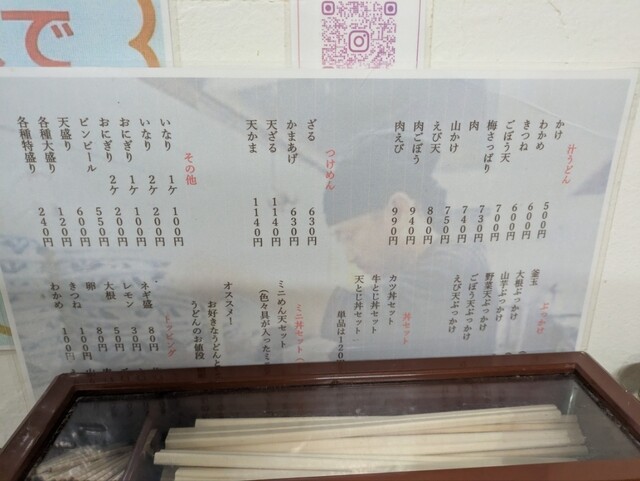 で
汁うどん
かけ 500円
わかめ 600円
きつね 600円
ごぼう天 700円
梅さっぱり 730円
肉 740円
山かけ 750円
えび天 800円
肉ごぼう 940円
肉えび 990円
つけめん
ざる 630円
かまあげ 630円
天ざる 1140円
天かま 1140円
その他
いなり 1ケ 100円
いなり 2ケ 200円
おにぎり 1ケ 100円
おにぎり 2ケ 200円
ビンビール 550円
天盛り 600円
各種大盛り 120円
各種特盛り 240円
ぶっかけ
釜玉
大根ぶっかけ
山芋ぶっかけ
野菜天ぶっかけ
ごぼう天ぶっかけ
えび天ぶっかけ
丼セット
カツ丼セット
牛とじ丼セット
天とじ丼セット
単品は120
ミニ丼セット（
ミニめん天セット
（色々具が入ったミ
オススメー
お好きなうどんと
うどんのお値段
トッピング
ネギ盛 80円
レモン 30円
大根 50円
卵 80円
きつね 100円
わかめ 100円